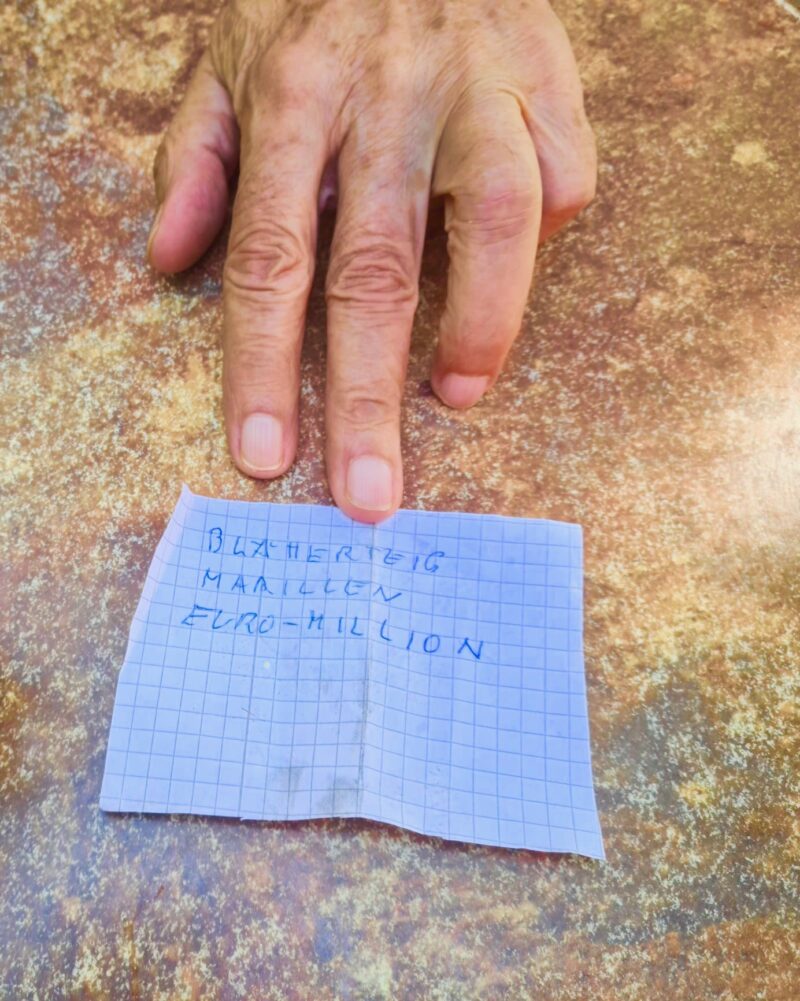 BLÄTTERTEIG
MARILLEN
EURO-MILLION